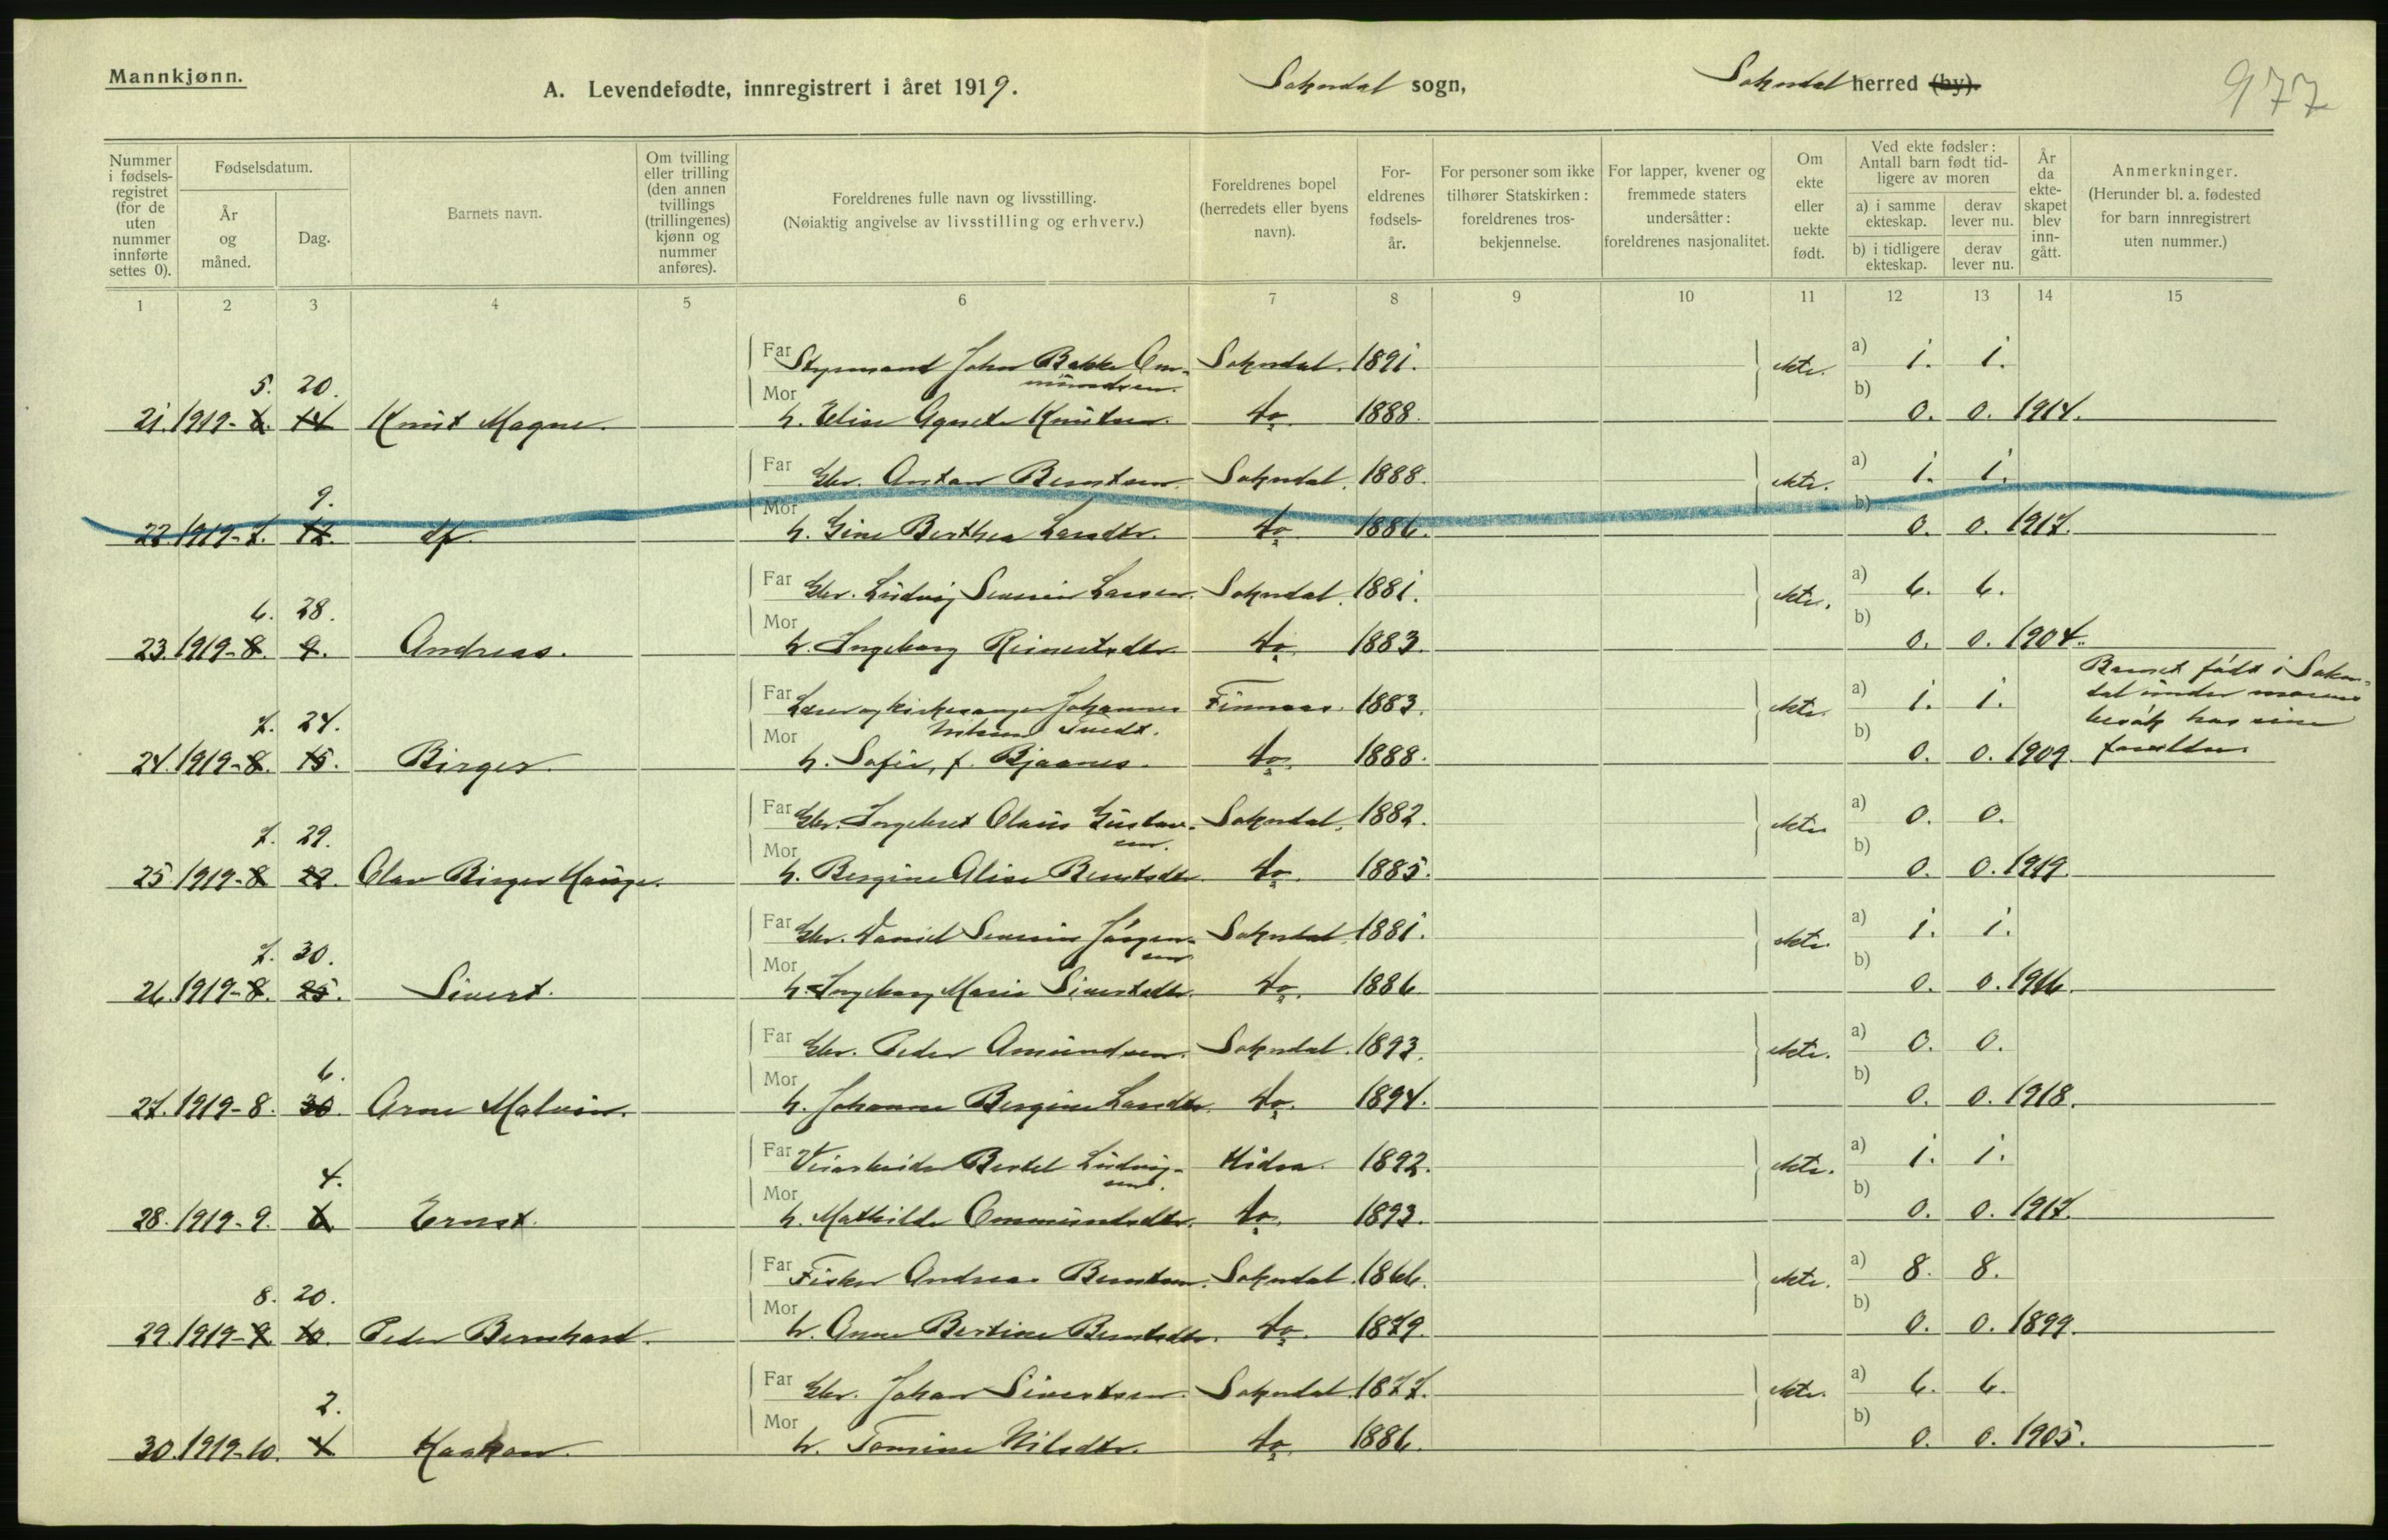 Mannkjønn.
A. Levendefødte, innregistrert i året 1919.
Sokndal sogn,
Sokndal herred (by).
977
Nummer i fødsels-registret (for de uten nummer innførte settes 0).
Fødselsdatum.
År og måned.
Dag.
Barnets navn.
Om tvilling eller trilling (den annen tvillings (trillingenes) kjønn og nummer anføres).
Foreldrenes fulle navn og livsstilling.
(Nøiaktig angivelse av livsstilling og erhverv.)
Foreldrenes bopel (herredets eller byens navn).
For-eldrenes fødsels-år.
For personer som ikke tilhører Statskirken: foreldrenes tros-bekjennelse.
For lapper, kvener og fremmede staters undersåtter: foreldrenes nasjonalitet.
Om ekte eller uekte født.
Ved ekte fødsler: Antall barn født tid-ligere av moren
a) i samme ekteskap.
derav lever nu.
b) i tidligere ekteskap.
derav lever nu.
År da ekte-skapet blev inn-gått.
Anmerkninger.
(Herunder bl. a. fødested for barn innregistrert uten nummer.)
1 2 3 4 5 6 7 8 9 10 11 12 13 14 15
Far Styrmand John Bakke Om- Sokndal. 1891. ekte. a) 1. 1.
mundsen.
5. 20.
21. 1919- 14 Knut Magne. Mor h. Elise Agnete Knutsen. do 1888. b) 0. 0. 1914.
Far Gbr. Anton Berntsen. Sokndal. 1888. ekte. a) 1. 1.
9.
22. 1919-7. 12. df. Mor h. Gine Berthea Larsdtr. do 1886. b) 0. 0. 1917.
Far Gbr. Ludvig Severin Larsen. Sokndal. 1881. ekte. a) 6. 6.
6. 28.
23. 1919-8. 9. Andreas. Mor h. Ingeborg Reinertsdtr. do 1883. b) 0. 0. 1904.
Far Lærer og kirkesanger Johannes Finnaas. 1883. ekte. a) 1. 1. Barnet født i Sokn-
Tvedt. dal under morens
7. 24. besøk hos sine
24. 1919-8. 15. Birger. Mor h. Sofie, f. Bjaanes. do 1888. b) 0. 0. 1909. foreldre.
Far Gbr. Ingebret Olaus Gustav- Sokndal. 1882. ekte a) 0. 0.
sen.
7. 29.
25. 1919-8 22. Olav Birger Hauge. Mor h. Bergine Alise Berntsdtr. do 1885. b) 0. 0. 1919.
Far Gbr. Daniel Severin Jørgen- Sokndal 1881. ekte. a) 1. 1.
sen
7. 30.
26. 1919-8. 25. Sivert. Mor h. Ingeborg Marie Sivertsdtr. do 1886. b) 0. 0. 1916.
Far Gbr. Peder Amundsen. Sokndal. 1893. ekte. a) 0. 0.
6.
27. 1919-8. 30. Arne Malvin. Mor h. Johanne Bergine Larsdtr. do 1894. b) 0. 0. 1918.
Far Bertel Ludvig- Hidra. 1892. ekte. a) 1. 1.
sen.
4.
28. 1919-9. 6 Ernst. Mor h. Mathilde Ommundsdtr. do 1893. b) 0. 0. 1917.
Far Fisker Andreas Berntsen. Sokndal. 1866. ekte. a) 8. 8.
8. 20.
29. 1919-9 10. Peder Bernhard. Mor h. Anne Bertine Berntsdtr. do 1879. b) 0. 0. 1899.
Far Gbr. Johan Sivertsen. Sokndal. 1877. ekte. a) 6. 6.
2.
30. 1919-10. 4 Haakon. Mor h. Tomine Nilsdtr. do 1886. b) 0. 0. 1905.